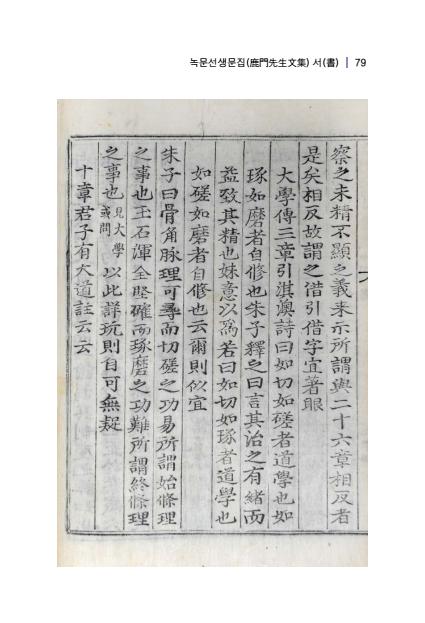 녹문선생문집(鹿門先生文集) 서(書) | 79
察之未精不顯之義来示所謂與二十六章相反者
是矣相反故謂之借引借字宜著眼
大學傳三章引淇澳詩曰如切如磋者道學也如
琢如磨者自修也朱子釋之曰言其治之有緒而
益致其精也妹意以爲若曰如切如琢者道學也
如磋如磨者自修也云爾則似宜
朱子曰骨角脉理可尋而切磋之功易所謂始條理
之事也玉石渾全堅確而琢磨之功難所謂終條理
之事也見大學或問以此詳玩則自可無疑
十章君子有大道註云云